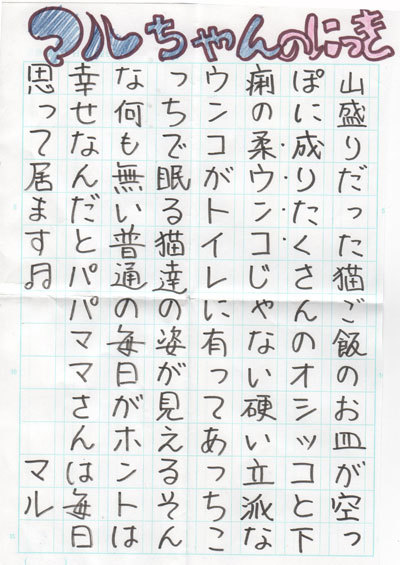 マルちゃんのにっき
山盛りだった猫ご飯のお皿が空っ
ぽに成りたくさんのオシッコと下
痢の柔ウンコじゃない硬い立派な
ウンコがトイレに有ってあっちこ
っちで眠る猫達の姿が見えるそん
な何も無い普通の毎日がホントは
幸せなんだとパパママさんは毎日
思って居ます♫ マル